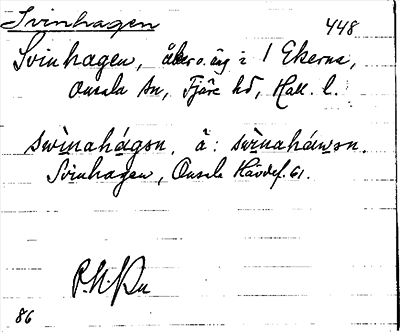 Svinhagen 448
Svinhagen, åker o. äng i 1 Ekerna,
Onsala sn, Fjäre hd, Hall. l.
swìnahágən. ä: swìnaháwən.
Svinhagen, Onsala Hävdef. 61.
86